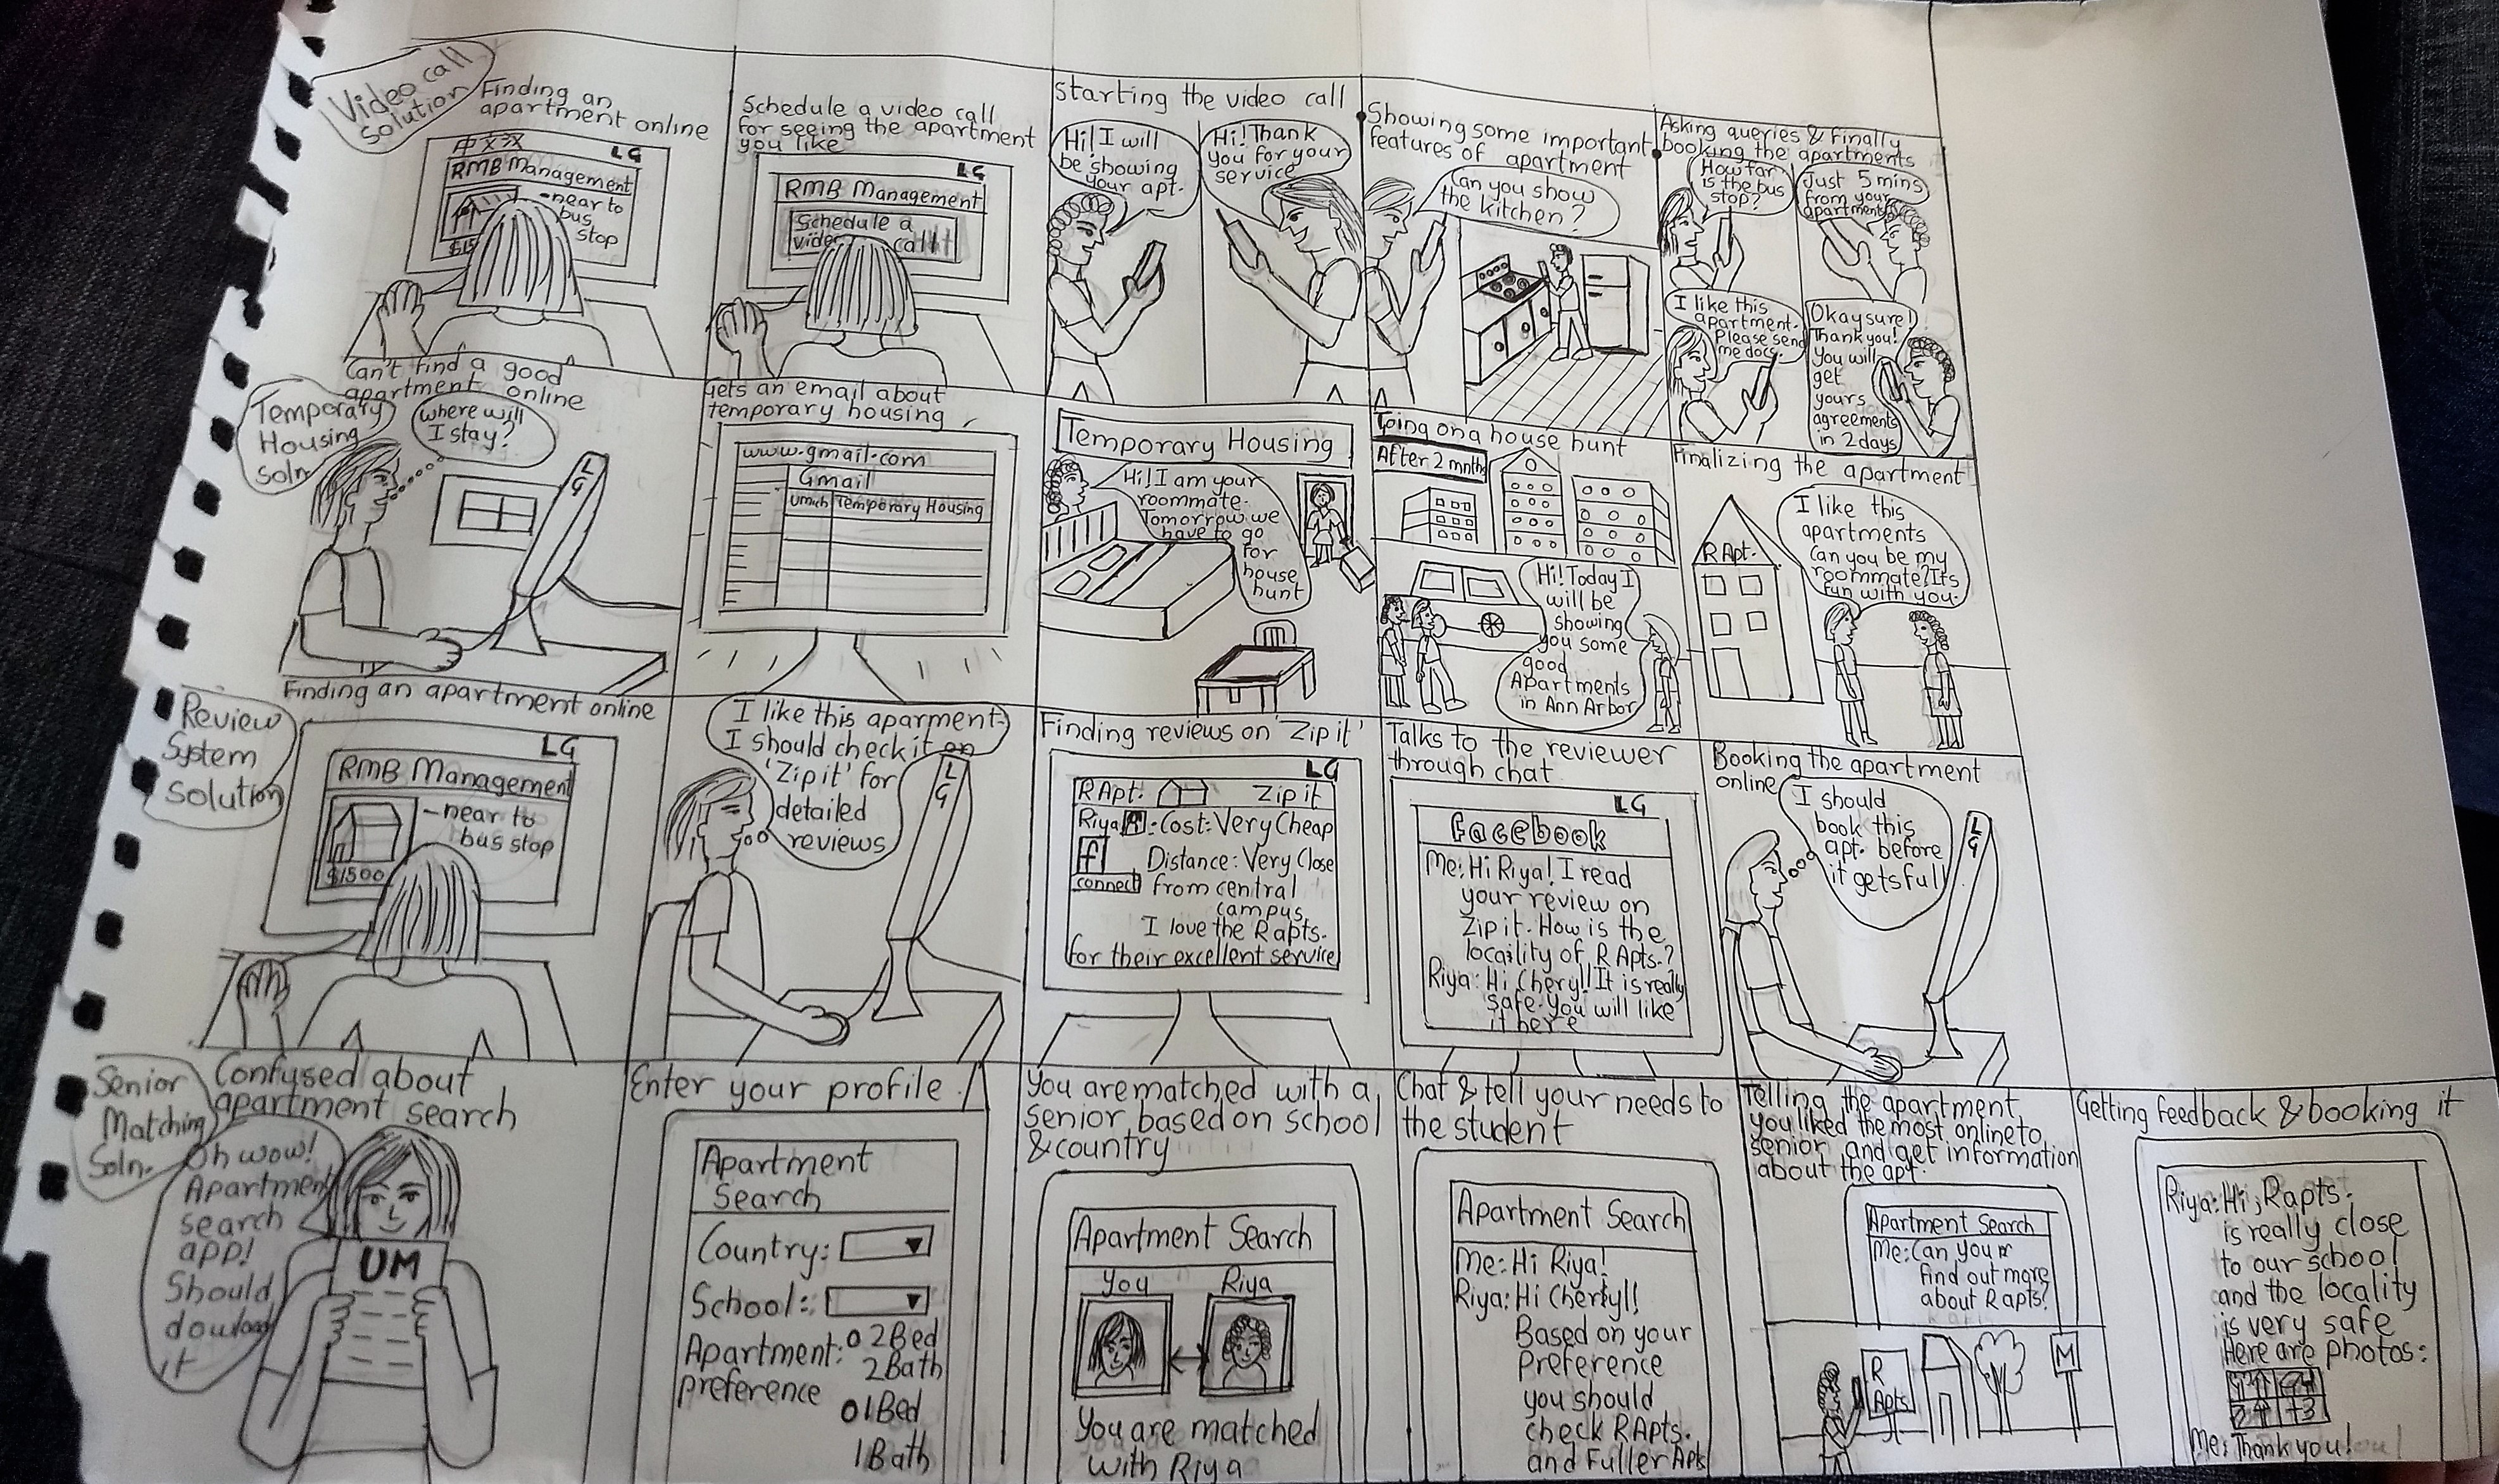 Video call
solution
Finding an
apartment online
中文汉
LG
RMB Management
-near to
bus
stop
$15
Schedule a video call
for seeing the apartment
you like
LG
RMB Management
Schedule a
video call
Starting the video call
Hi! I will
be showing
your apt.
Hi! Thank
you for your
service
Showing some important
features of apartment
Can you show
the kitchen?
Asking queries & Finally
booking the apartments
How far
is the bus
stop?
Just 5 mins
from your
apartment
I like this
apartment.
Please send
me docs.
Okay sure!
Thank you!
You will
get
yours
agreements
in 2 days
Temporary
Housing
soln
Can't find a good
apartment online
where will
I stay?
LG
Gets an email about
temporary housing
www.gmail.com
Gmail
Umich Temporary Housing
Temporary Housing
Hi! I am your
roommate.
Tomorrow we
have to go
for
house
hunt
Going on a house hunt
After 2 mnths
Hi! Today I
will be
showing
you some
good
Apartments
in Ann Arbor
Finalizing the apartment
R Apt.
I like this
apartments
Can you be my
roommate? Its
fun with you.
Review
System
Solution
Finding an apartment online
LG
RMB Management
-near to
bus stop
$1500
I like this aparment.
I should check it on
'Zip it' for
detailed
reviews
LG
Finding reviews on 'Zip it'
LG
R Apt. Zip it
Riya : Cost: Very Cheap
f Distance: Very Close
connect from central
campus
I love the R apts.
for their excellent service
Talks to the reviewer
through chat
LG
Facebook
Me: Hi Riya! I read
your review on
Zip it. How is the
locaility of R Apts.?
Riya: Hi Cheryl! It is really
safe. You will like
it here
Booking the apartment
online
I should
book this
apt. before
it gets full
LG
Senior
Matching
Soln.
Confused about
apartment search
Oh wow!
Apartment
search
app!
Should
download
it
UM
Enter your profile
Apartment
Search
Country:
School:
Apartment: 2 Bed
2 Bath
preference
1 Bed
1 Bath
You are matched with a
senior based on school
& country
Apartment Search
You Riya
You are matched
with Riya
Chat & tell your needs to
the student
Apartment Search
Me: Hi Riya!
Riya: Hi Cheryl!
Based on your
Preference
you should
check R Apts.
and Fuller Apts
Telling the apartment
you liked the most online to
senior and get information
about the apt.
Apartment Search
Me: Can you
find out more
about R apts?
R
Apts
M
Getting feedback & booking it
Riya: Hi, R apts.
is really close
to our school
and the locality
is very safe
Here are photos:
Me: Thank you!